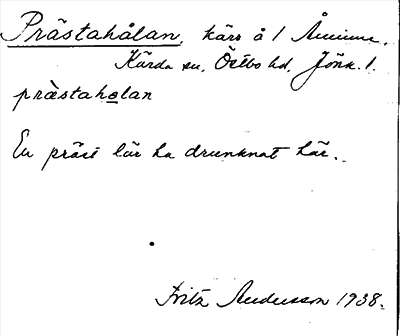 Prästahålan, kärr å 1 Åminne,
Kärda sn, Östbo hd, Jönk. l.
prästaholan
En präst lär ha drunknat här.
Fritz Andersson 1938.